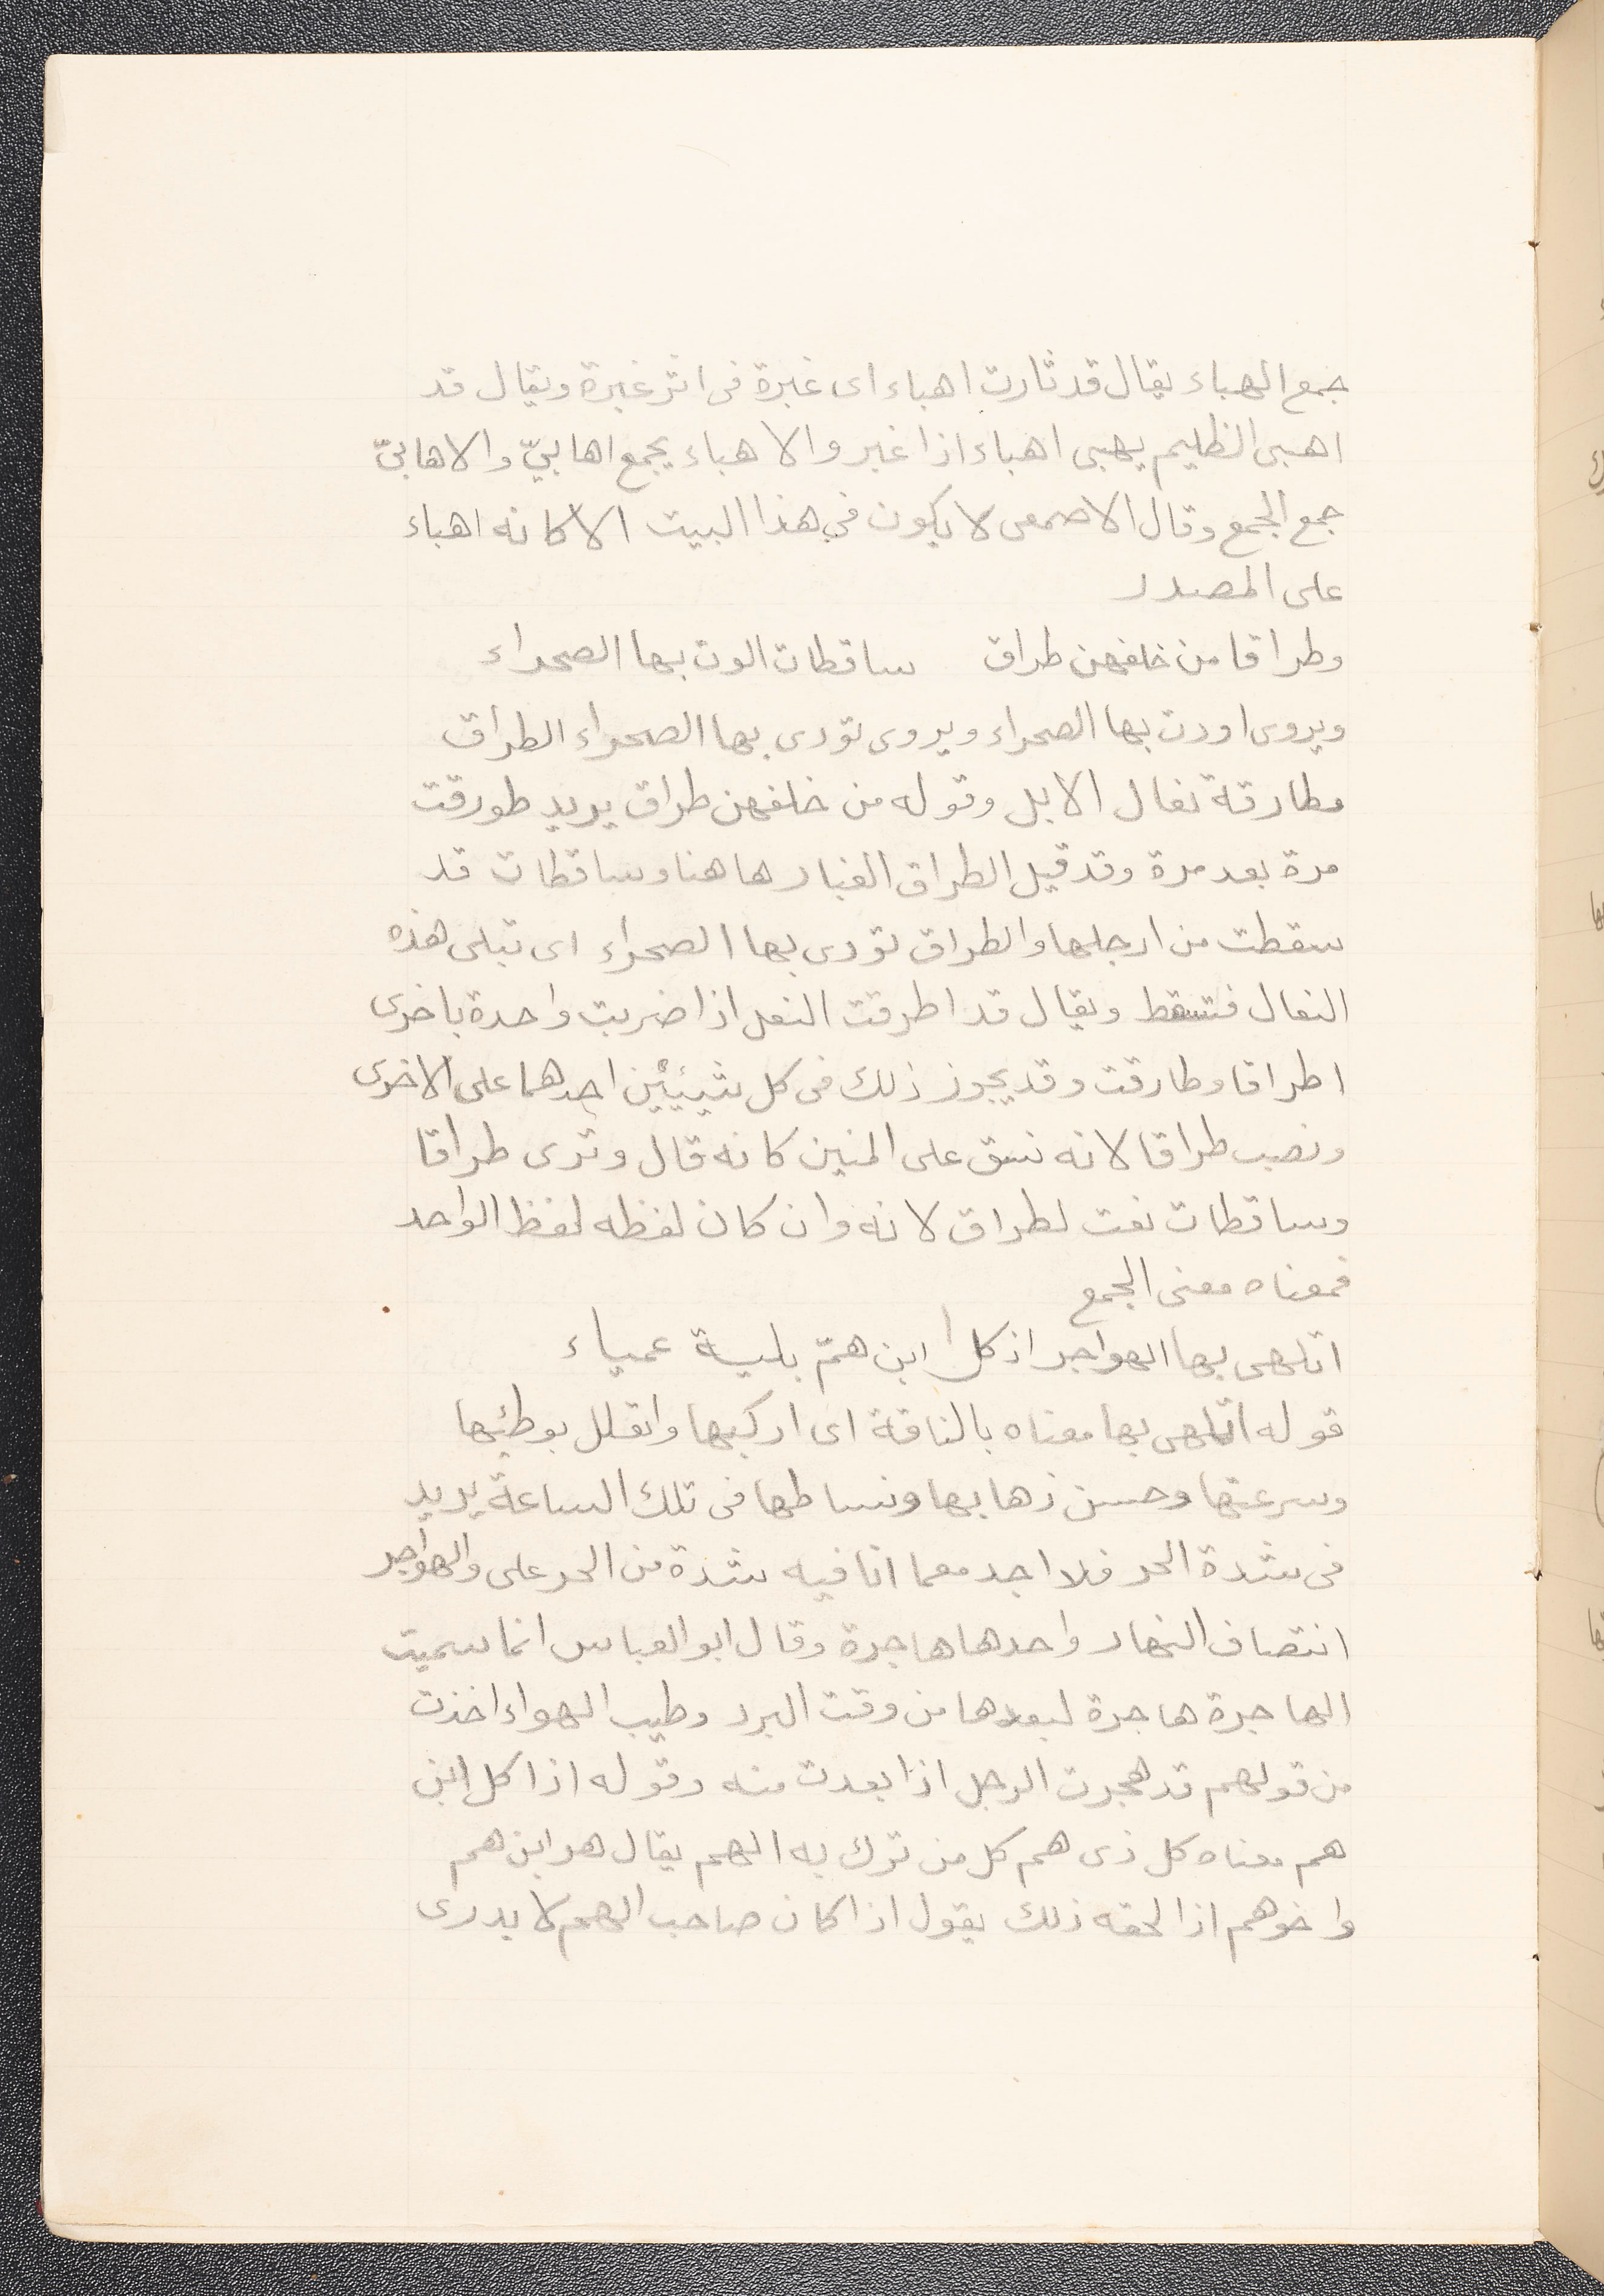 جمع الهباء يقال قد ثارت اهباء اى غبرة فى اثر غبرة ويقال قد
اهبى الظليم يهبى اهباء اذا غبر والاهباء يجمع اهابىّ والاهابىّ
جمع الجمع وقال الاصمعى لا يكون فى هذا البيت الا كانه اهباء
على المصدر
وطراقا من خلفهن طراق ساقطات الوت بها الصحراء
ويروى اودت بها الصحراء ويروى تودى بها الصحراء الطراق
مطارقة نعال الابل وقوله من خلفهن طراق يريد طورقت
مرة بعد مرة وقد قيل الطراق الغبار هاهنا وساقطات قد
سقطت من ارجلها والطراق تودى بها الصحراء اى تبلى هذه
النعال فتسقط ويقال قد اطرقت النعل اذا ضربت واحدة باخرى
اطراقا وطارقت وقد يجوز ذلك فى كل شيئين احدهما على الاخرى
ونصب طراقا لانه نسق على المنين كانه قال وترى طراقا
وساقطات نعت لطراق لانه وان كان لفظه لفظ الواحد
فمعناه معنى الجمع
اتلهى بها الهواجر اذ كل ابن همّ بلية عمياء
قوله اتلهى بها معناه بالناقة اى اركبها واتعلل بوطئها
وسرعتها وحسن ذهابها ونساطها فى تلك الساعة يريد
فى شدة الحر فلا اجد معما انا فيه شدة من الحر على والهواجر
انتصاف النهار واحدها هاجرة وقال ابو العباس انما سميت
الهاجرة هاجرة لبعدها من وقت البرد وطيب الهواء اخذت
من قولهم قد هجرت الرجل اذا بعدت منه وقوله اذا كل ابن
هم معناه كل ذى هم كل من ترك به الهم يقال هو ابن هم
واخو هم اذا لحقه ذلك يقول اذا كان صاحب الهم لا يدرى